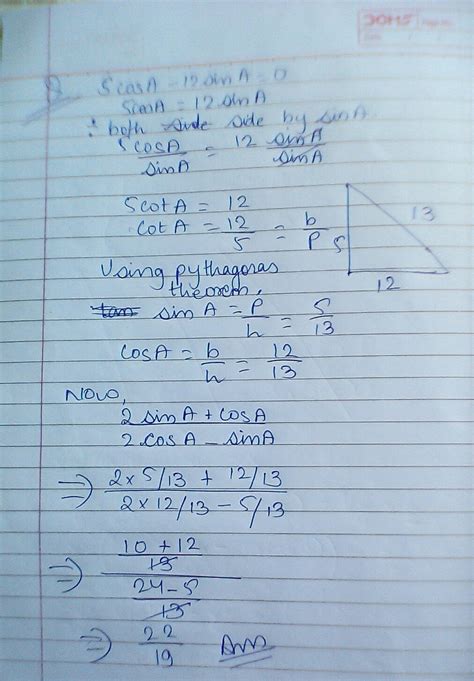 5cosA - 12 sinA = 0
5cosA = 12 sinA
∴ both side side by sinA
5cosA/sinA = 12 sinA/sinA
5cotA = 12
cotA = 12/5 = b/P
5
13
12
Using pythagoras
theorem,
tan sinA = P/h = 5/13
cosA = b/h = 12/13
Now,
2 sinA + cosA
2 cosA - sinA
⇒ 2×5/13 + 12/13
2×12/13 - 5/13
⇒ 10+12/13
24-5/13
⇒ 22/19 Ans